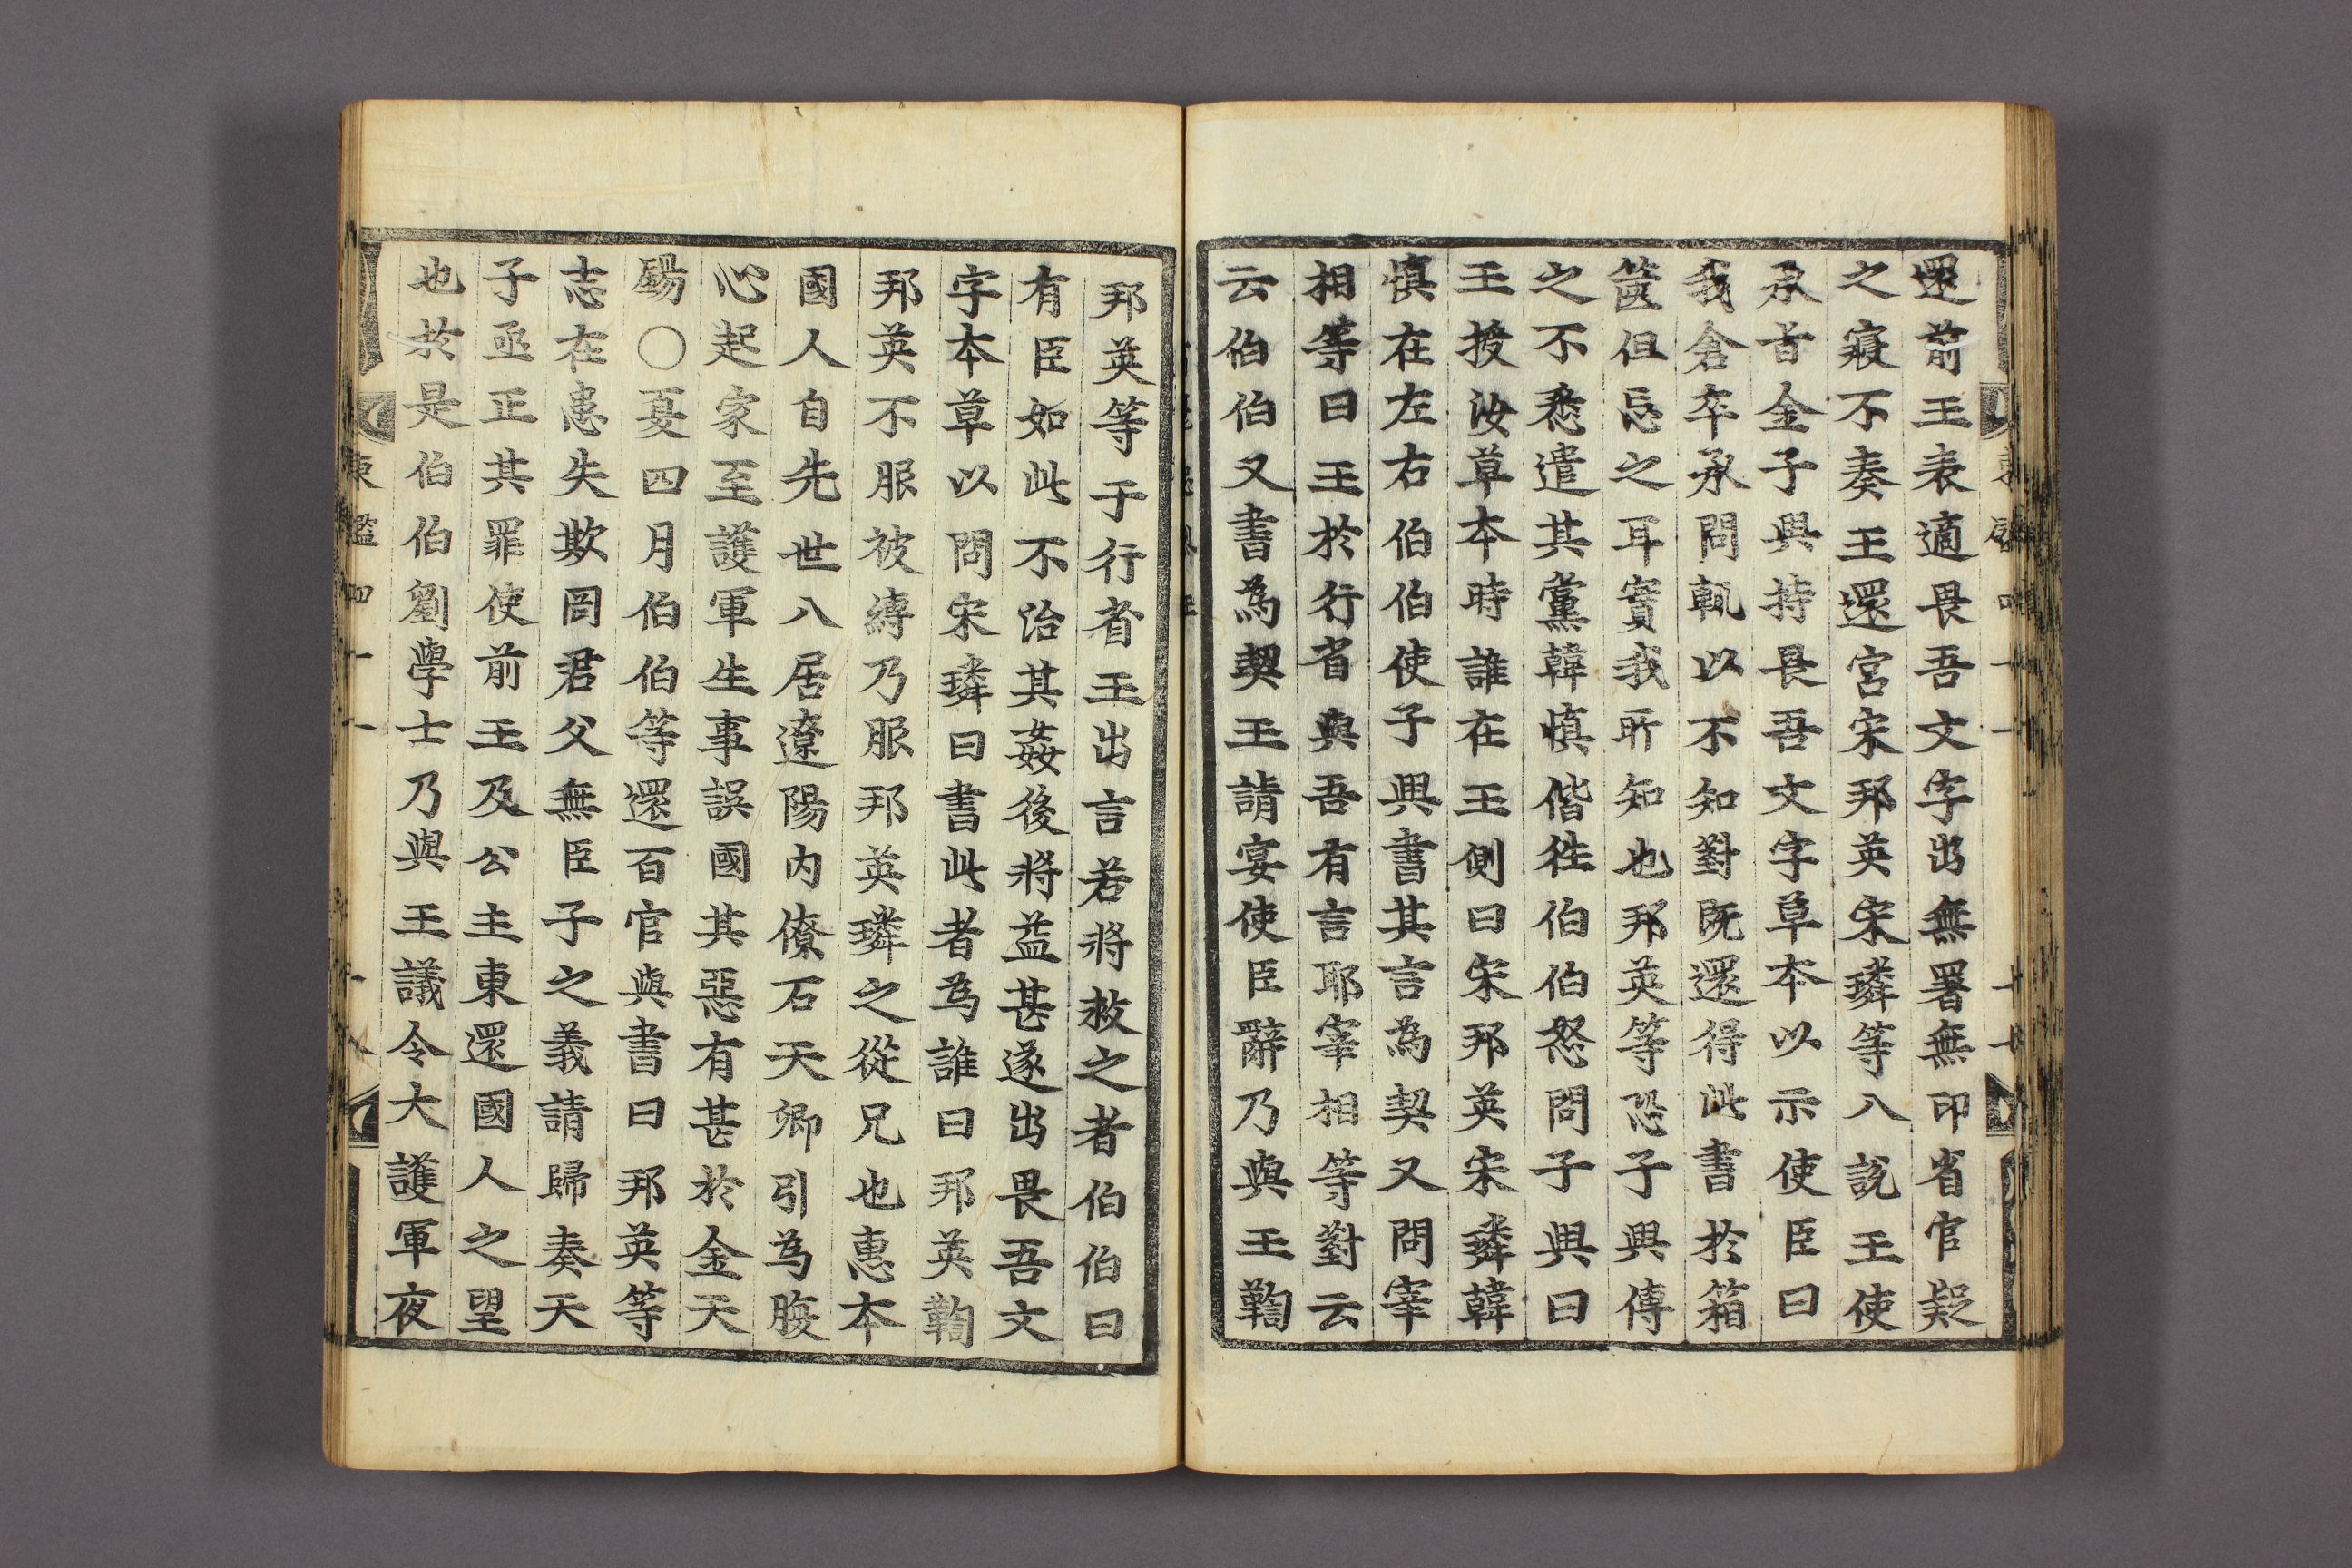 還前王表適畏吾文字出無署無印省官疑
之寢不奏王還宮宋邦英宋璘等八說王使
承旨金子興持畏吾文字草本以示使臣曰
我倉卒承問輒以不知對旣還得此書於箱
篋但忘之耳實我所知也邦英等恐子興傳
之不悉遣其黨韓愼偕徃伯伯怒問子興曰
王授汝草本時誰在王側曰宋邦英宋璘韓
愼在左右伯伯使子興書其言為契又問宰
相等曰王於行省與吾有言耶宰相等對云
云伯伯又書為契王請宴使臣辭乃與王鞫
邦英等于行省王出言若將赦之者伯伯曰
有臣如此不治其姦後將益甚遂出畏吾文
字本草以問宋璘曰書此者為誰曰邦英鞫
邦英不服被縛乃服邦英璘之從兄也惠本
國人自先世八居遼陽内僚石天卿引為腹
心起家至護軍生事誤國其惡有甚於金天
錫○夏四月伯伯等還百官與書曰邦英等
志在患失欺罔君父無臣子之義請歸奏天
子亟正其罪使前王及公主東還國人之望
也於是伯伯劉學士乃與王議令大護軍夜
東鑑四十一